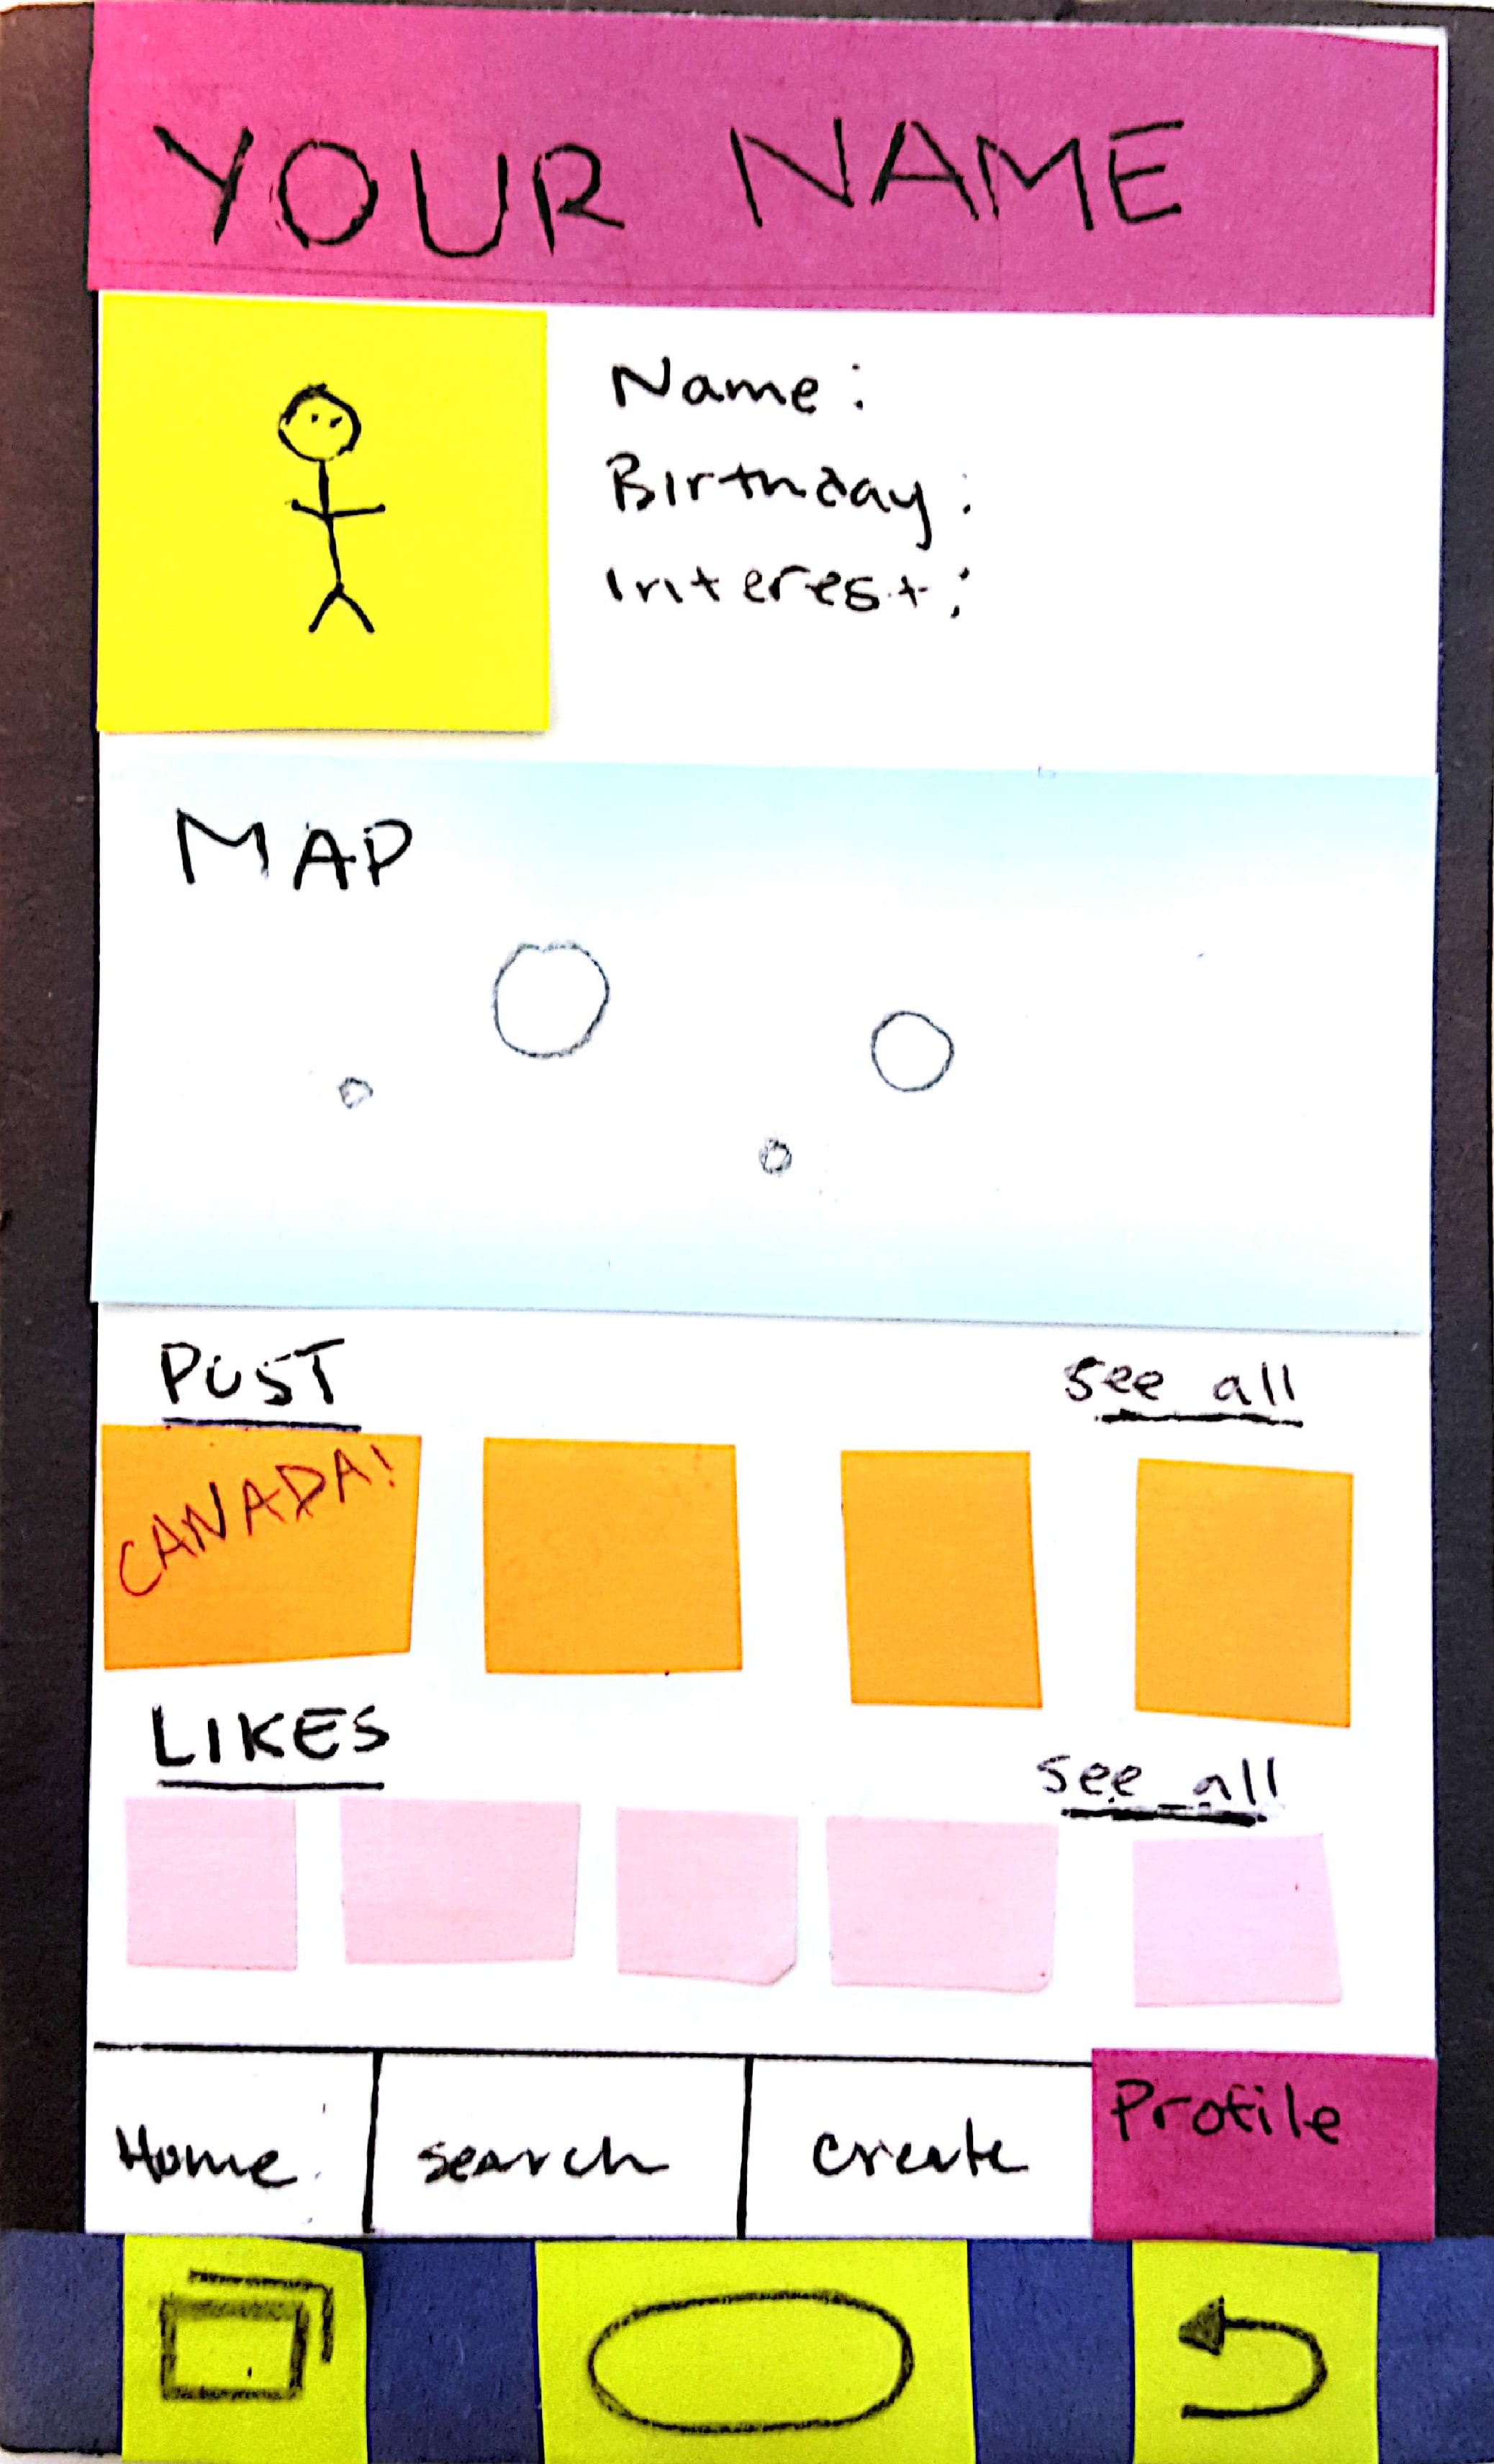 YOUR NAME
Name:
Birthday:
Interest:
MAP
POST
see all
CANADA!
LIKES
see all
Home
search
create
Profile